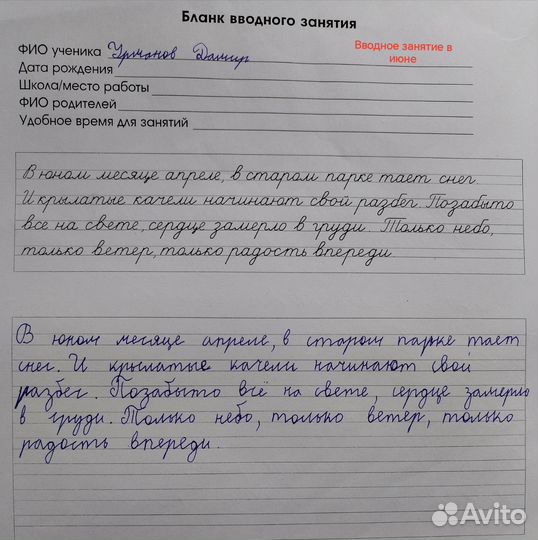 Бланк вводного занятия
ФИО ученика Урманов Дамир
Вводное занятие в
июне
Дата рождения
Школа/место работы
ФИО родителей
Удобное время для занятий
В юном месяце апреле, в старом парке тает снег.
И крылатые качели начинают свой разбег. Позабыто
все на свете, сердце замерло в груди. Только небо,
только ветер, только радость впереди.
В юном месяце апреле, в старом парке тает
снег. И крылатые качели начинают свой
разбег. Позабыто всё на свете, сердце замерло
в груди. Только небо, только ветер, только
радость впереди.
Avito